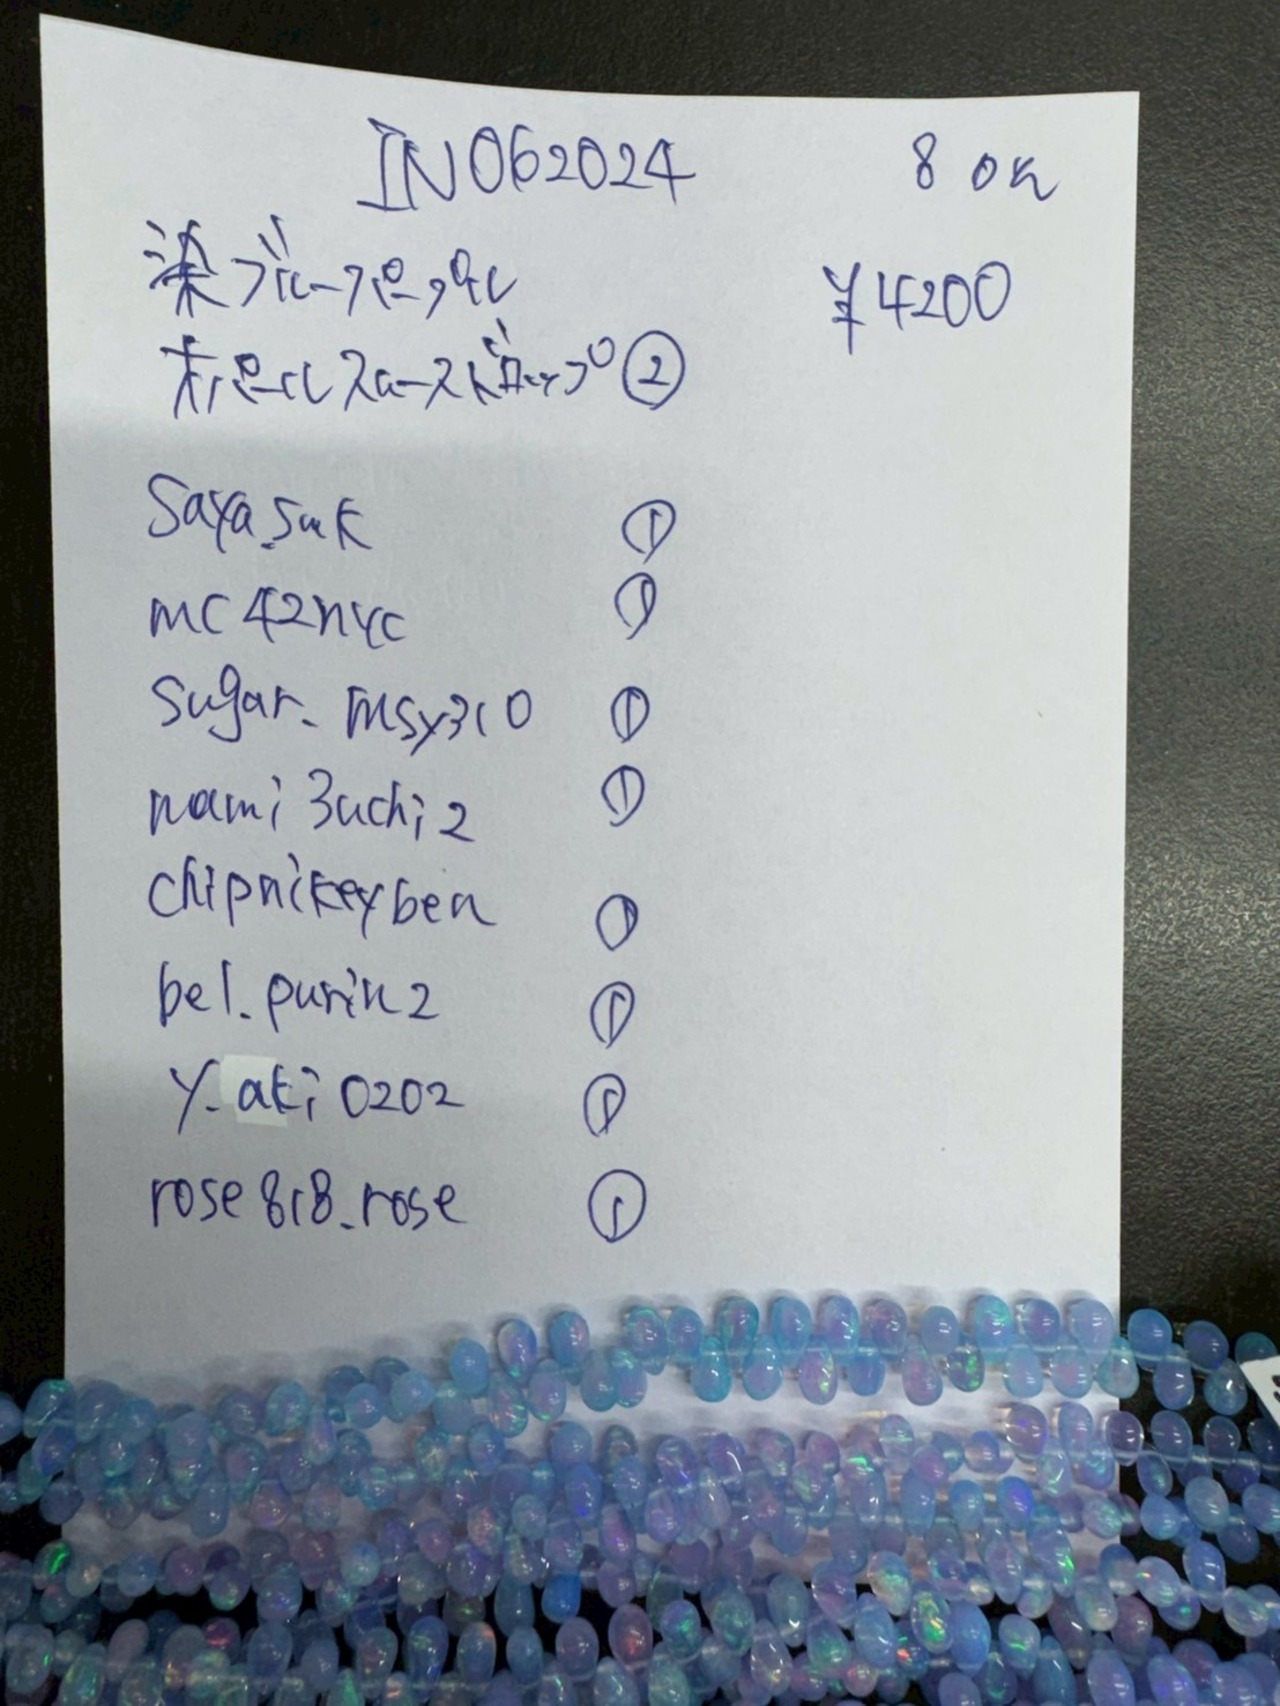 IN062024 8 on
染ブルーパープル ¥4200
オパールスムースドロップ ②
Saya.suk ①
mc42nyc ①
sugar_msy310 ①
nami3uchi2 ①
chipnikeyben ①
bel.purin2 ①
y_aki0202 ①
rose818_rose ①